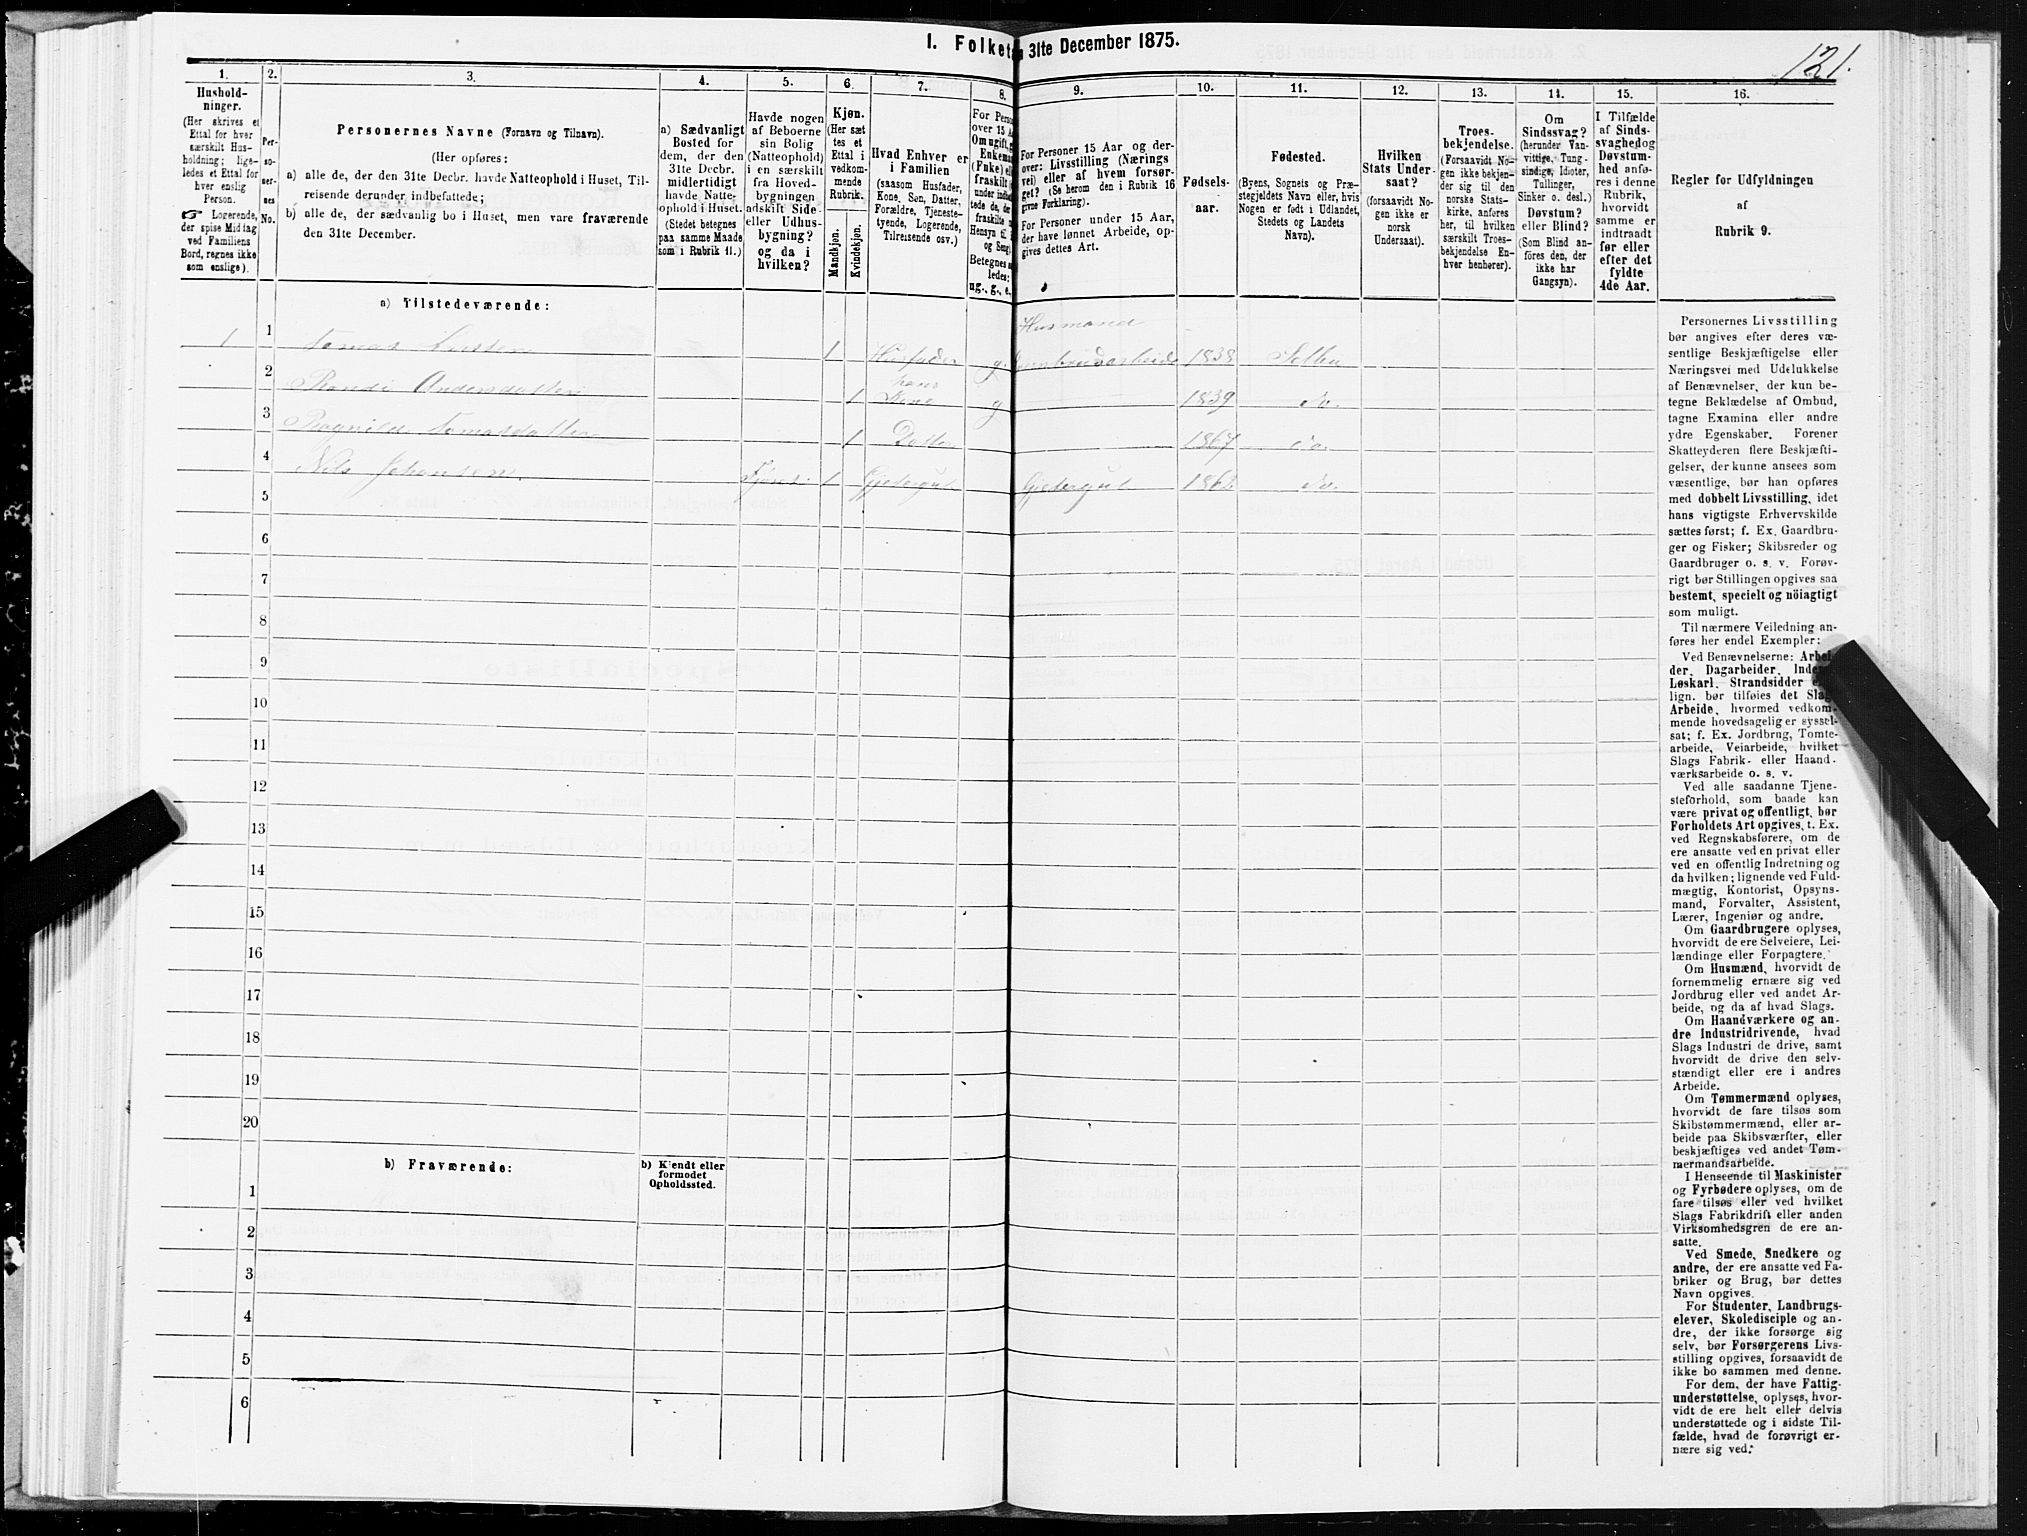 I. Folketa 31te December 1875.
121.
1.
2.
3.
4.
5.
6.
7.
8.
9.
10.
11.
12.
13.
14.
15.
16.
Hushold-
ninger.
(Her skrives et
Ettal for hver
særskilt Hus-
holdning; lige-
ledes et Ettal for
hver enslig
Person.
☞ Logerende,
der spise Middag
ved Familiens
Bord, regnes ikke
som enslige).
Per-
so-
ner-
nes
No.
Personernes Navne (Fornavn og Tilnavn).
(Her opføres:
a) alle de, der den 31te Decbr. havde Natteophold i Huset, Til-
reisende derunder indbefattede;
b) alle de, der sædvanlig bo i Huset, men vare fraværende
den 31te December.
a) Sædvanligt
Bosted for
dem, der den
31te Decbr.
midlertidigt
havde Natte-
ophold i Huset.
(Stedet betegnes
paa samme Maade
som i Rubrik 11.)
Havde nogen
af Beboerne
sin Bolig
(Natteophold)
i en særskilt
fra Hoved-
bygningen
adskilt Side-
eller Udhus-
bygning?
og da i
hvilken?
Kjøn.
(Her sæt-
tes et
Ettal i
vedkom-
mende
Rubrik.
Mandkjøn.
Kvindekjøn.
Hvad Enhver er
i Familien
(saasom Husfader,
Kone, Søn, Datter,
Forældre, Tjeneste-
tyende, Logerende,
Tilreisende osv.)
For Pers
over 15 A
Om ugift, g
Enkema
(Enke) el
fraskilt
Betegnes
ledes:
ug., g., e.
For Personer 15 Aar og der-
over: Livsstilling (Nærings-
vei) eller af hvem forsør-
get? (Se herom den i Rubrik 16
givne Forklaring).
For Personer under 15 Aar,
der have lønnet Arbeide, op-
gives dettes Art.
Fødsels-
aar.
Fødested.
(Byens, Sognets og Præ-
stegjeldets Navn eller, hvis
Nogen er født i Udlandet,
Stedets og Landets
Navn).
Hvilken
Stats Under-
saat?
(forsaavidt No-
gen ikke er
norsk
Undersaat).
Troes-
bekjendelse.
(Forsaavidt No-
gen ikke bekjen-
der sig til den
norske Stats-
kirke, anføres
her, til hvilken
særskilt Troes-
bekjendelse En-
hver henhører).
Om
Sindssvag?
(herunder Van-
vittige, Tung-
sindige, Idioter,
Tullinger,
Sinker o. desl.)
Døvstum?
eller Blind?
(Som Blind an-
føres den, der
ikke har
Gangsyn).
I Tilfælde
af Sinds-
svaghed og
Døvstum-
hed anfø-
res i denne
Rubrik,
hvorvidt
samme er
indtraadt
før eller
efter det
fyldte
4de Aar.
Regler for Udfyldningen
af
Rubrik 9.
a) Tilstedeværende:
Husmand
1 1 Tomas 1 Husfader g. 1838 Selbu
2 Randi Andersdatter 1 hans Kone g 1839 do.
3 Ragnild Tomasdatter 1 Datter 1867 do.
4 Nils Johansen. 1 Gjetergut Gjetergut 1862 do.
5
6
7
8
9
10
11
12
13
14
15
16
17
18
19
20
b) Fraværende:
b) Kjendt eller
formodet
Opholdssted.
1
2
3
4
5
6
Personernes Livsstilling
bør angives efter deres væ-
sentlige Beskjæftigelse eller
Næringsvei med Udelukkelse
af Benævnelser, der kun be-
tegne Beklædelse af Ombud,
tagne Examina eller andre
ydre Egenskaber. Forener
Skatteyderen flere Beskjæfti-
gelser, der kunne ansees som
væsentlige, bør han opføres
med dobbelt Livsstilling, idet
hans vigtigste Erhvervskilde
sættes først; f. Ex. Gaardbru-
ger og Fisker; Skibsreder og
Gaardbruger o. s. v. Forøv-
rigt bør Stillingen opgives saa
bestemt, specielt og nöiagtigt
som muligt.
Til nærmere Veiledning an-
føres her endel Exempler:
Ved Benævnelserne: Arbei-
der, Dagarbeider, Inders
Løskarl, Strandsidder
lign. bør tilføies det Slag
Arbeide, hvormed vedkom-
mende hovedsagelig er syssel-
sat; f. Ex. Jordbrug, Tomte-
arbeide, Veiarbeide, hvilket
Slags Fabrik- eller Haand-
værksarbeide o. s. v.
Ved alle saadanne Tjene-
steforhold, som baade kan
være privat og offentligt, bør
Forholdets Art opgives, t. Ex.
ved Regnskabsførere, om de
ere ansatte ved en privat eller
ved en offentlig Indretning og
da hvilken; lignende ved Fuld-
mægtig, Kontorist, Opsyns-
mand, Forvalter, Assistent,
Lærer, Ingeniør og andre.
Om Gaardbrugere oplyses,
hvorvidt de ere Selveiere, Lei-
lændinge eller Forpagtere.
Om Husmænd, hvorvidt de
fornemmelig ernære sig ved
Jordbrug eller ved andet Ar-
beide, og da af hvad Slags.
Om Haandværkere og an-
dre Industridrivende, hvad
Slags Industri de drive, samt
hvorvidt de drive den selv-
stændigt eller ere i andres
Arbeide.
Om Tømmermænd oplyses,
hvorvidt de fare tilsøs som
Skibstømmermænd, eller ar-
beide paa Skibsværfter, eller
beskjæftiges ved andet Tøm-
mermandsarbeide.
I Henseende til Maskinister
og Fyrbødere oplyses, om de
fare tilsøs eller ved hvilket
Slags Fabrikdrift eller anden
Virksomhedsgren de ere an-
satte.
Ved Smede, Snedkere og
andre, der ere ansatte ved Fa-
briker og Brug, bør dettes
Navn opgives.
For Studenter, Landbrugs-
elever, Skoledisciple og an-
dre, der ikke forsørge sig
selv, bør Forsørgerens Livs-
stilling opgives, forsaavidt de
ikke bo sammen med denne.
For dem, der have Fattig-
understøttelse, oplyses, hvor-
vidt de ere helt eller delvis
understøttede og i sidste Til-
fælde, hvad de forøvrigt er-
nære sig ved.